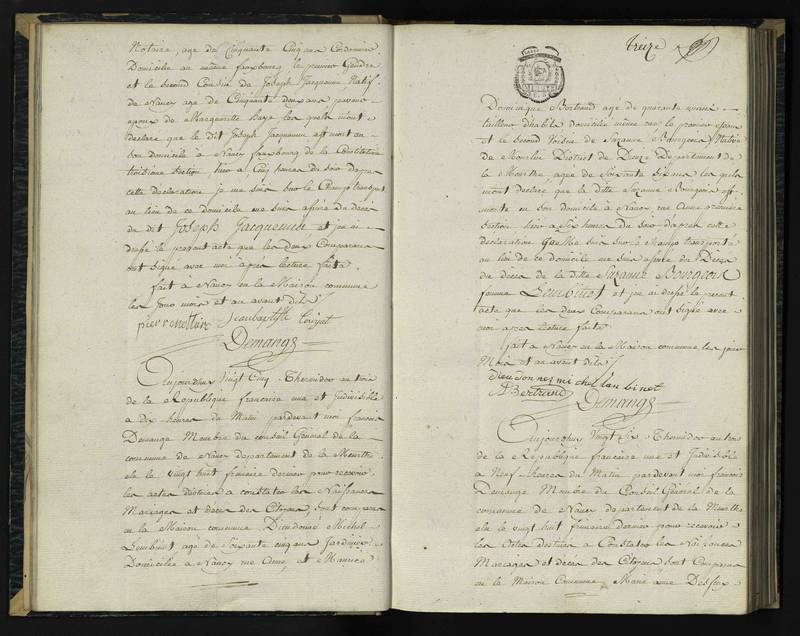 Notaire, agé de Cinquante Cinq ans Cordonnier
Domicilié au même fauxbourg le premier Gendre
et le second Cousin de Joseph Jacquemin Natif
de Nancy agé de Cinquante deux ans
époux de Marguerite Baye les quels m'ont
déclaré que le dit Joseph Jacquemin est mort en
son domicile à Nancy fauxbourg de la Constitution
troisième section hier a Cinq heures du soir d'après
cette déclaration je me suis sur le Champ transporté
au lieu de ce domicile me suis assuré du Décés
du dit Joseph Jacquemin et j'en ai
dressé le present acte que les deux Comparans
ont signé avec moi après lecture faite
fait à Nancy en la Maison commune
les jour mois et an avant dits
pierre nottaire Jean baptiste
Demange
Aujourdhuy Vingt Cinq Thermidor an trois
de la République francaise une et Indivisible
a dix heures du Matin pardevant moi francois
Demange Membre du Conseil Général de la
commune de Nancy departement de la Meurthe
élu le vingt huit frimaire dernier pour recevoir
les actes destinés a constater les Naissances
Mariages et décés des Citoyens, sont comparus
en la Maison commune Dieudonné Michel
Lembinet, agé de Soixante cinq ans Jardinier
Domicilié à Nancy rue et
treize
Dominique Bertrand agé de quarante
tailleur d'habits domicilié même rue le premier époux
et le second Voisin de Suzanne Bourgeois Native
de District de Dieuze Departement de
la Meurthe agée de Soixante Six ans les quels
mont déclaré que la ditte Suzanne Bourgeois est
morte en son domicile à Nancy rue premiere
section hier a Six heures du Soir d'après cette
déclaration Je me suis sur le champ transporté
au lieu de ce domicile me suis assuré du Décés
du décés de la ditte Suzanne Bourgeois
femme Lembinet et j'en ai dressé le present
acte que les deux Comparans ont signé avec
moi après lecture faite
fait a Nancy en la Maison commune les jour
Mois et an avant dits
dieudonnez michel lanbinet
Bertrand
Demange
Aujourdhuy Vingt Six Thermidor an trois
de la République francaise une et Indivisible
a Neuf heures du Matin pardevant moi francois
Demange Membre du Conseil Général de la
commune de Nancy departement de la Meurthe
élu le vingt huit frimaire dernier pour recevoir
les Actes destinés a Constater les Naissances
Mariages et décés des Citoyens sont Comparus
en la Maison Commune Marie anne